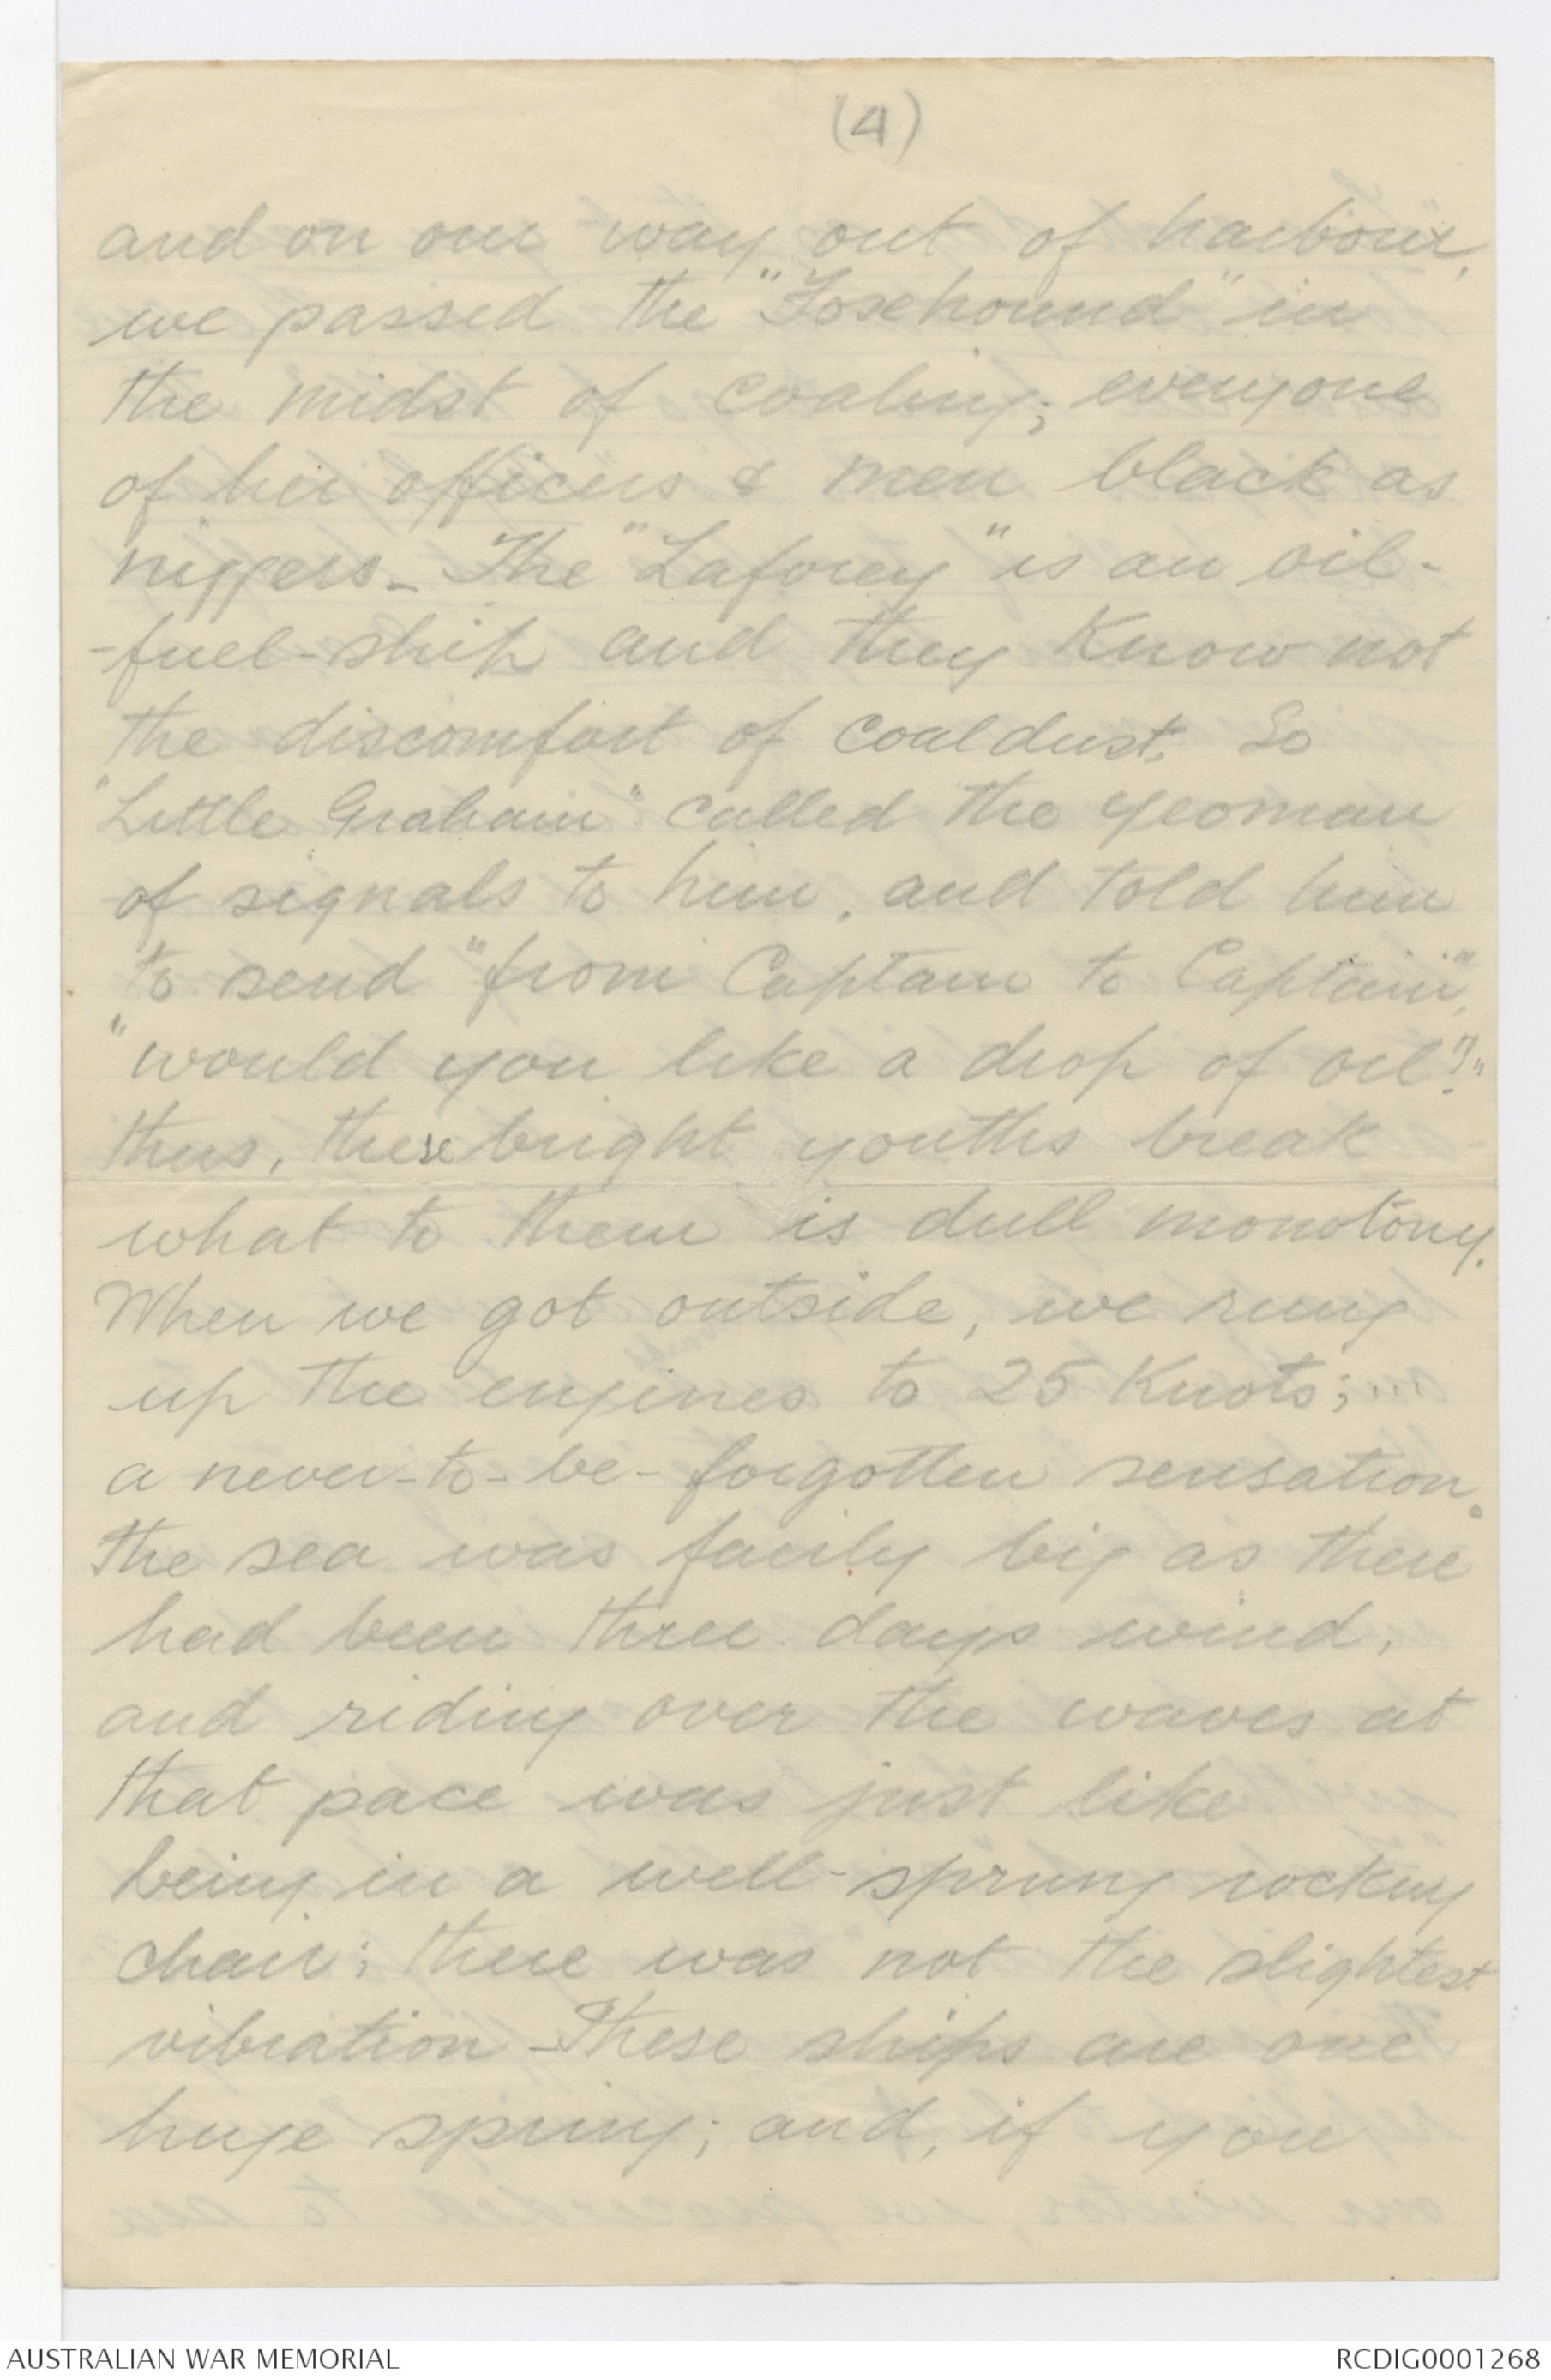 (4)
and on our way out of harbour,
we passed the "Foxhound" in
the midst of coaling; everyone
of her officers & men black as
niggers - The "Laforey" is an oil-
-fuel-ship and they know not
the discomfort of coaldust. So
"Little Graham" called the yeoman
of signals to him, and told him
to send "from Captain to Captain",
"would you like a drop of oil"?"
thus, these bright youths break
what to them is dull monotony.
When we got outside, we rung
up the engines to 25 Knots;
a never-to-be-forgotten sensation.
the sea was fairly big as there
had been three days wind,
and riding over the waves at
that pace was just like
being in a well-sprung rocking
chair; there was not the slightest
vibration - These ships are one
huge spring; and, if you
AUSTRALIAN WAR MEMORIAL
RCDIG0001268